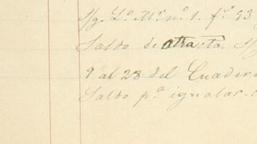 Sg. Lo. Mr. no. 1. fo. 23
Saldo de atrasta.
9 al 23 del Cuader
Saldo pa. igualar